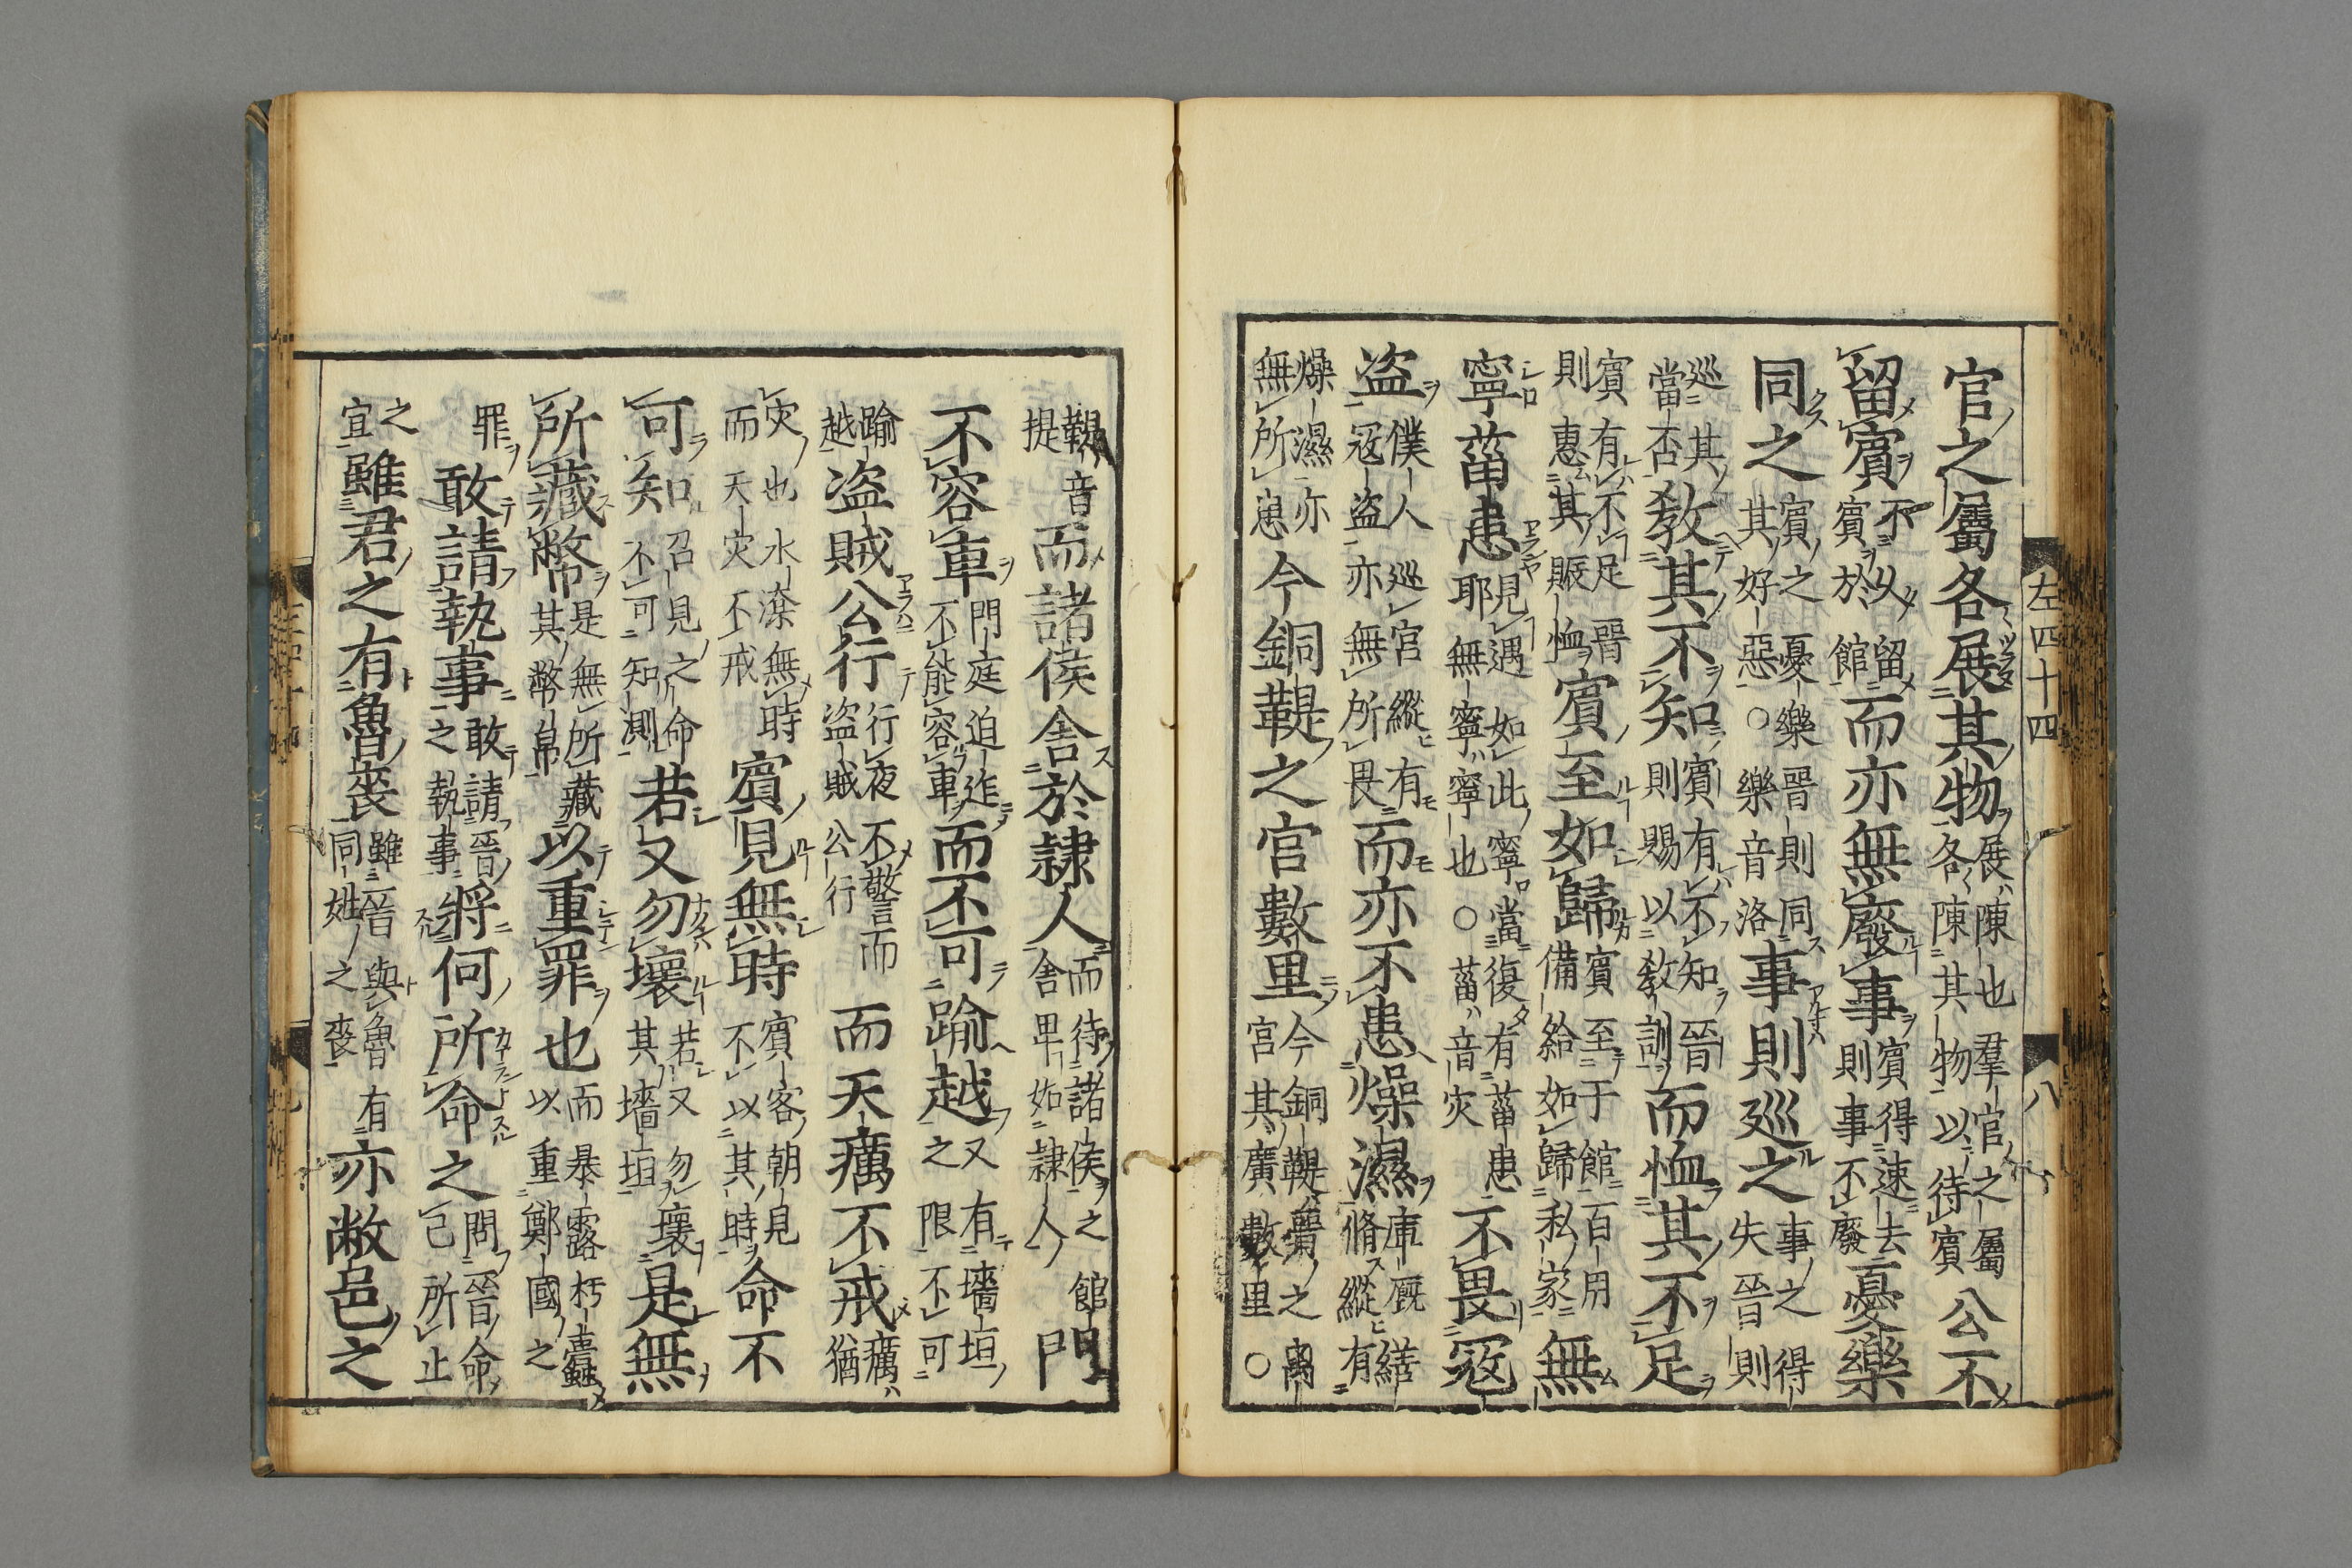 左四十四
八
官之屬各展其物展陳也羣官之屬各陳其物以待賓公不
留賓不久留賓於館而亦無廢事賓得速去則事不廢憂樂
同之賓之憂樂晉則同其好惡○樂音洛事則巡之事之得失晉則
巡其當否教其不知賓有不知晉則賜以教訓而恤其不足
賓有不足晉則惠其賑恤賓至如歸賓至于館百用備給如歸私家無
寧菑患見遇如此寧當復有菑患耶無寧寧也○菑音灾不畏寇
盗僕人巡宮縱有寇盗亦無所畏而亦不患燥濕庫厩繕脩縱有
燥濕亦無所患今銅鞮之宮數里今銅鞮晉之離宮其廣數里○
鞮音提而諸侯舍於隷人而待諸侯之舍卑如隷人館門
不容車門庭迫迮不能容車而不可踰越又有墻垣之限不可
踰越盗賊公行行夜不警而盗賊公行而天癘不戒癘猶
灾也水潦無時而天灾不戒賓見無時賓客朝見不以其時命不
可知召見之命不可知測若又勿壞若又勿壞其墻垣是無
所藏幣是無所藏其幣帛以重罪也而暴露朽蠹以重鄭國之
罪敢請執事敢請晉之執事將何所命之問晉命己所止
之宜雖君之有魯喪雖晉與魯有同姓之喪亦敝邑之